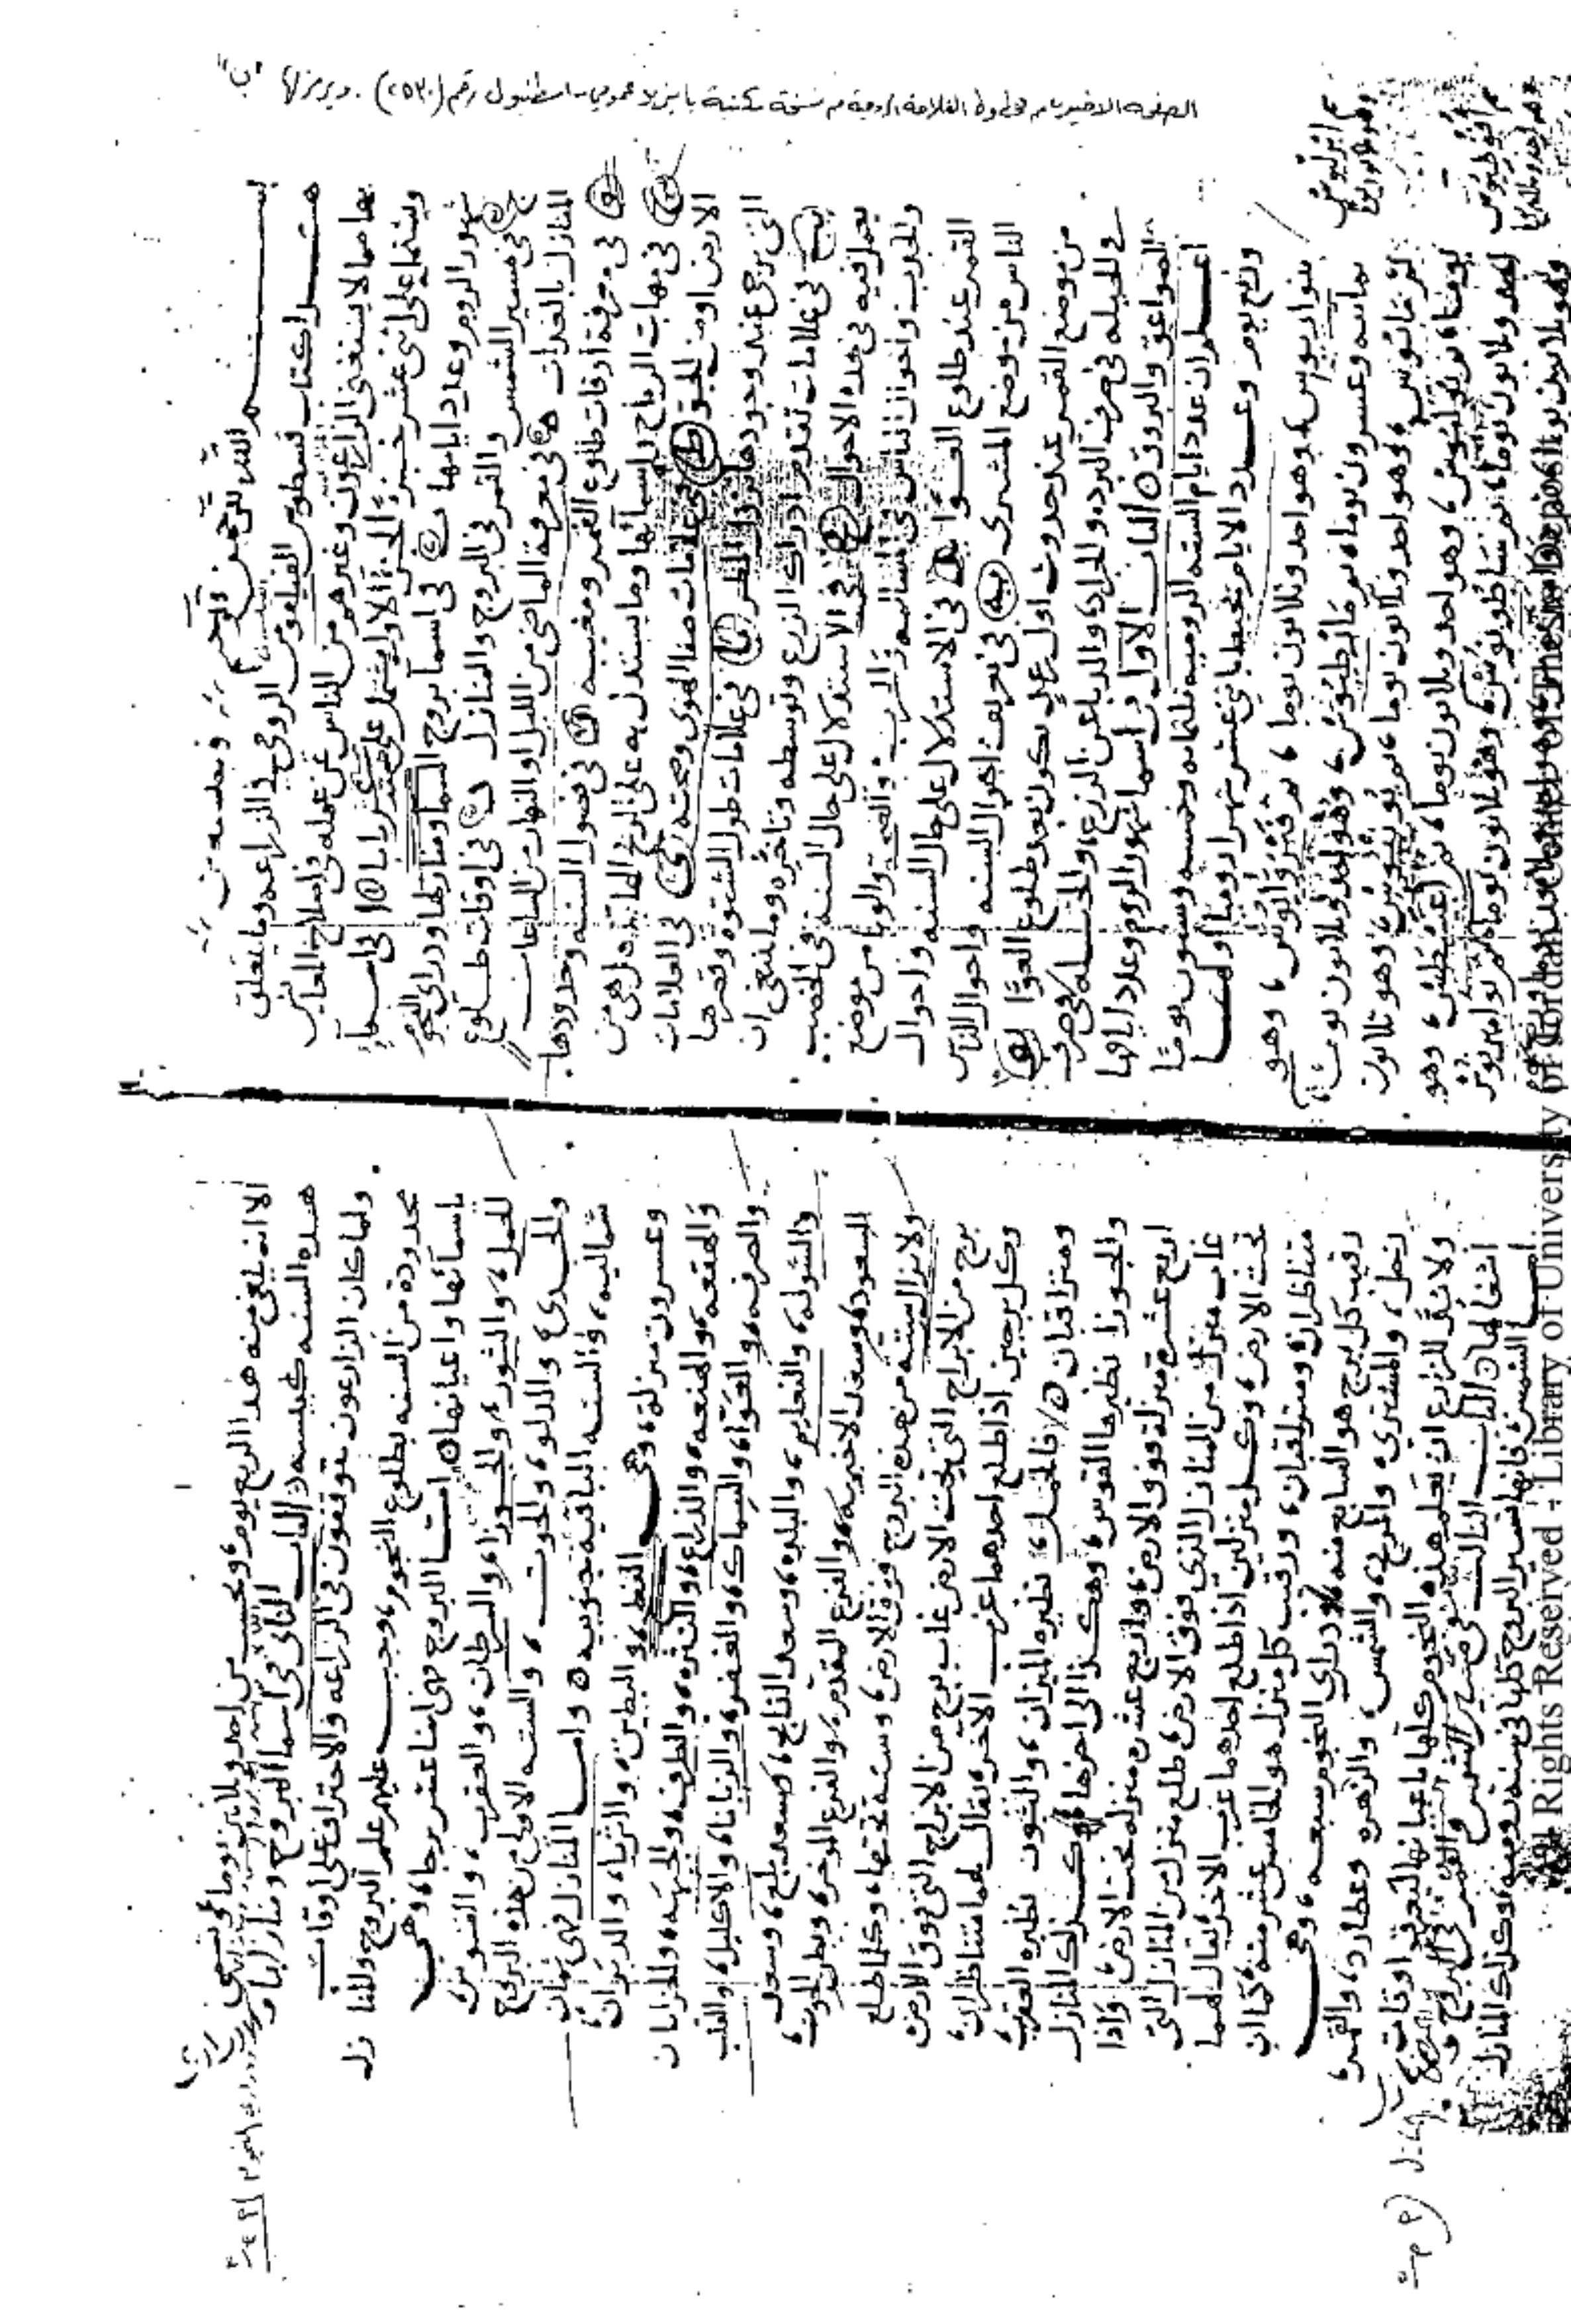 الصفحة الاخيرة من مخطوط الفلاحة الرومية من نسخة مكتبة بايزيد عمومي باسطنبول رقم (٢٥٣٠). ويرمز لها "ب"
بسم الله الرحمن الرحيم وبه نستعين
هذا كتاب قسطوس الفيلسوف الرومي في الزراعه وما يتعلق
بها مما لا يستغنى الزارعون وغيرهم من الناس عن عمله في اصلاح المعايش
ويشتمل على اثنى عشر جزءا الجزء الاول يشتمل على عشر بابا ا في اسماء
شهور الروم وعدد ايامها ب في اسما بروج السما ومنازلها ودرارى النجوم
ج في مسير الشمس والقمر في البروج والمنازل د في اوقات طلوع
المنازل بالغدوات ه في معرفة الماضي من الليل او النهار من الساعات
و في معرفة أوقات طلوع القمر ومغيبه ز في فصول السنه وحدودها
ح في مهاب الرياح واسمائها وما يستدل به على الريح الهابه اهى من
الارض او من الجو ط في علامات صفا الهوى وصحته ى في العلامات
التى يرجى عند وجودها نزول المطر يا في علامات طول الشتوة وقصرها
يب في علامات تقدم ادراك الزرع وتوسطه وتاخره وما ينبغى ان
يعمل فيه في هذه الاحوال يج في الاستدلال على حال السنه في الخصب
والجدب واحوال الناس في السالمه والحرب والصحة والوبا من موضع
القمر عند طلوع العوا يد في الاستدلال على حال السنه واحوال
الناس من موضع المشترى يه في تعريف احوال السنه واحوال الناس
من موضع القمر عند حدوث اول رعد يكون بعد طلوع العوا يو
في الحيله في صرف البرد والجراد والدبا عن الزرع والحيله في صرف
الصواعق والبروق ۞ الباب الاول في اسما شهور الروم وعدد ايامها
اعلم ان عدد ايام السنه الروميه ثلثمايه وخمسه وستون يوما
وربع يوم وعدد الايام تحيط باثنى عشر شهرا روميا اولها
ينواريوس وهو احد وثلاثون يوما ثم فبرواريوس وهو
ثمانيه وعشرون يوما ثم مارطيوس وهو احد وثلاثون يوما
ثم ابرليوس وهو ثلاثون يوما
ثم مايوس وهو احد وثلاثون يوما ثم يونيوس وهو ثلاثون
يوما ثم يوليوس وهو احد وثلاثون يوما ثم اغسطس وهو
احد وثلاثون يوما ثم سبطمبريوس وهو ثلاثون يوما ثم
الا انه يلغى منه هذا الربع يوم ويحسب من احد وثلاثين يوما وتسمى
هذه السنه كبيسه ۞ الباب الثاني في اسما البروج ومنازلها و
ولما كان الزارعون يتوقفون في الزراعه والاحتراف على اوقات
محدودة من السنه بطلوع النجوم وجب عليهم علم البروج والمنازل
باسمائها واعيانها ۞ اما البروج فهى اثنا عشر برجا وهى
الحمل والثور والجوزاء والسرطان والعقرب والقوس
والجدى والدلو والحوت والسته الاولى من هذه البروج
شماليه والسته الباقية جنوبيه ۞ واما المنازل فهى ثمان
وعشرون منزلة وهى النطح والبطين والثريا والدبران
والهقعه والهنعه والذراع والنثره والطرف والجبهه والخراتان
والصرفه والعواء والسماك والغفر والزبانا والاكليل والقلب
والشوله والنعايم والبلده وسعد الذابح وسعد بلع وسعد
السعود وسعد الاخبيه والفرغ المقدم والفرغ الموخر وبطن الحوت
ولا تزال سته من هذه البروج فوق الارض وسته تحتها وكلما طلع
برج من الابراج التي تحت الارض غاب برج من الابراج التى فوق الارض
وكل برجين اذا طلع احدهما غرب الاخر يقال لهما متناظران
ومتراقبان ۞ فالحمل نظيره الميزان والثور نظيره العقرب
والجوزا نظيرها القوس وهكذا الى اخرها وكذلك المنازل
اربع عشره منزلة فوق الارض واربع عشره منزله تحت الارض واذا
غاب منزل من المنازل الذي فوق الارض طلع منزل من المنازل التى
تحت الارض وكل منزلين اذا طلع احدهما غرب الاخر يقال لهما
متناظران ومتراقبان ورقيب كل منزله هو الخامس عشر منه كما ان
رقيب كل برج هو السابع منه ودرارى النجوم سبعه وهى
زحل والمشترى والمريخ والشمس والزهره وعطارد والقمر
ولا بد للزارع ان يعلم هذه النجوم كلها باعيانها ليعرف اوقات
اشغالها ۞ الباب الثالث في مسير الشمس والقمر في البروج و
اما الشمس فانها تسير البروج كلها في سنه روميه وكذلك المنازل
All Rights Reserved - Library of University of Jordan - Center of Thesis Deposit